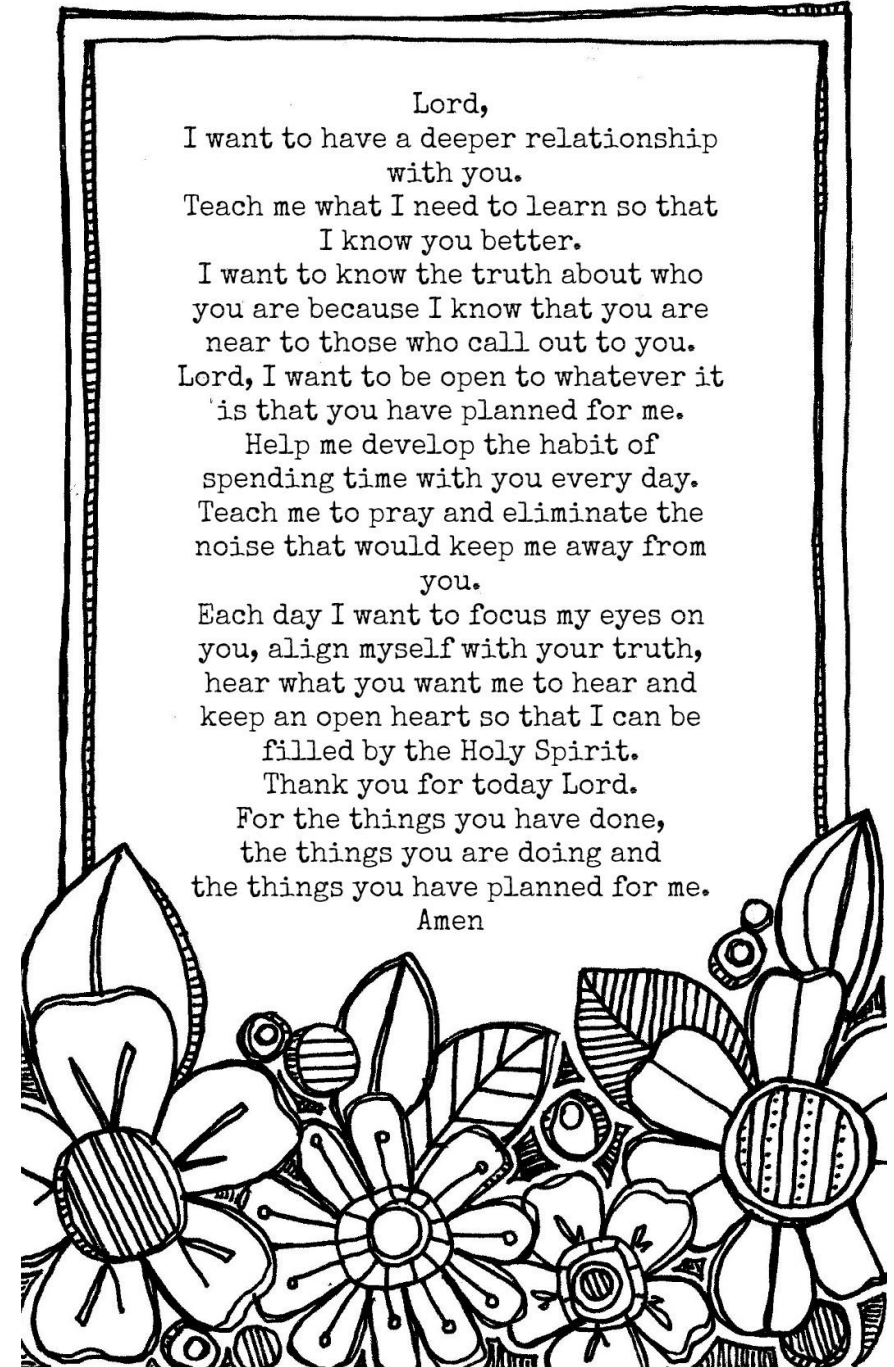 Lord,
I want to have a deeper relationship
with you.
Teach me what I need to learn so that
I know you better.
I want to know the truth about who
you are because I know that you are
near to those who call out to you.
Lord, I want to be open to whatever it
is that you have planned for me.
Help me develop the habit of
spending time with you every day.
Teach me to pray and eliminate the
noise that would keep me away from
you.
Each day I want to focus my eyes on
you, align myself with your truth,
hear what you want me to hear and
keep an open heart so that I can be
filled by the Holy Spirit.
Thank you for today Lord.
For the things you have done,
the things you are doing and
the things you have planned for me.
Amen